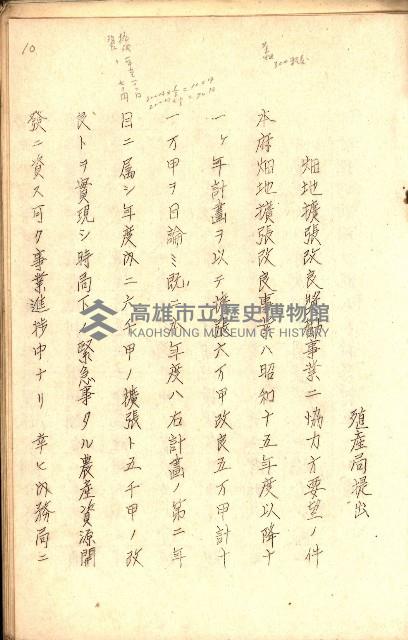 10
殖產局提出
畑地擴張改良獎勵事業ニ協力方要望ノ件
本府畑地擴張改良事業ハ昭和十五年度以降十
一ヶ年計畫ヲ以テ擴張六万甲改良五万甲計十
一万甲ヲ目論ミ既ニ元年度ハ右計畫ノ第二年
目ニ屬シ年度內ニ六千甲ノ擴張ト五千甲ノ改
良トヲ實現シ時局下ノ緊急事タル農產資源開
發ニ資ス可ク事業進捗中ナリ 幸ヒ內務局ニ
高雄市立歷史博物館
KAOHSIUNG MUSEUM OF HISTORY